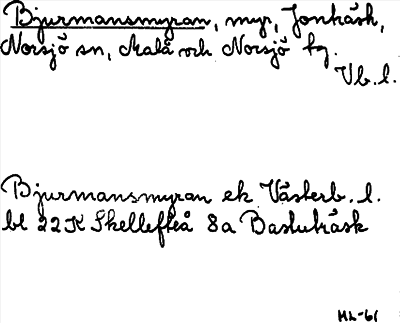 Bjurmansmyran, myr, Jonkåsk,
Norsjö sn, Malå och Norsjö tg.
Vb. l.
Bjurmansmyran ek Västerb. l.
bl 22K Skellefteå 8a Bastuträsk
ML-61